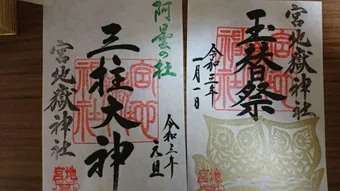 宮地嶽神社
玉替祭
令和三年
一月一日
阿曇の杜
三柱大神
宮地嶽神社
令和三年
元旦